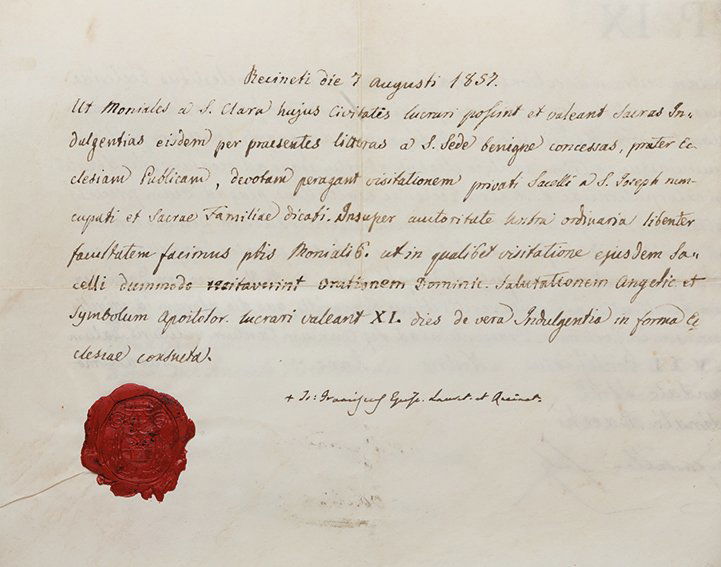 P. IX
Recineti die 7 Augusti 1857.
Ut Moniales a S. Clara hujus Civitatis lucrari possint et valeant Sacras In-
dulgentias eisdem per praesentes litteras a S. Sede benigne concessas, praeter Ec-
clesiam Publicam, devotam peragant visitationem privati Sacelli a S. Joseph nun-
cupati et Sacrae Familiae dicati. Insuper auctoritate nostra ordinaria libenter
facultatem facimus ptis Monialib. ut in qualibet visitatione ejusdem Sa-
celli dummodo recitaverint Orationem Dominic. Salutationem Angelic. et
Symbolum Apostolor. lucrari valeant XL. dies de vera Indulgentia in forma Ec-
clesiae consueta.
+ Jo: Franciscus Episc. Lauret. et Recinet.